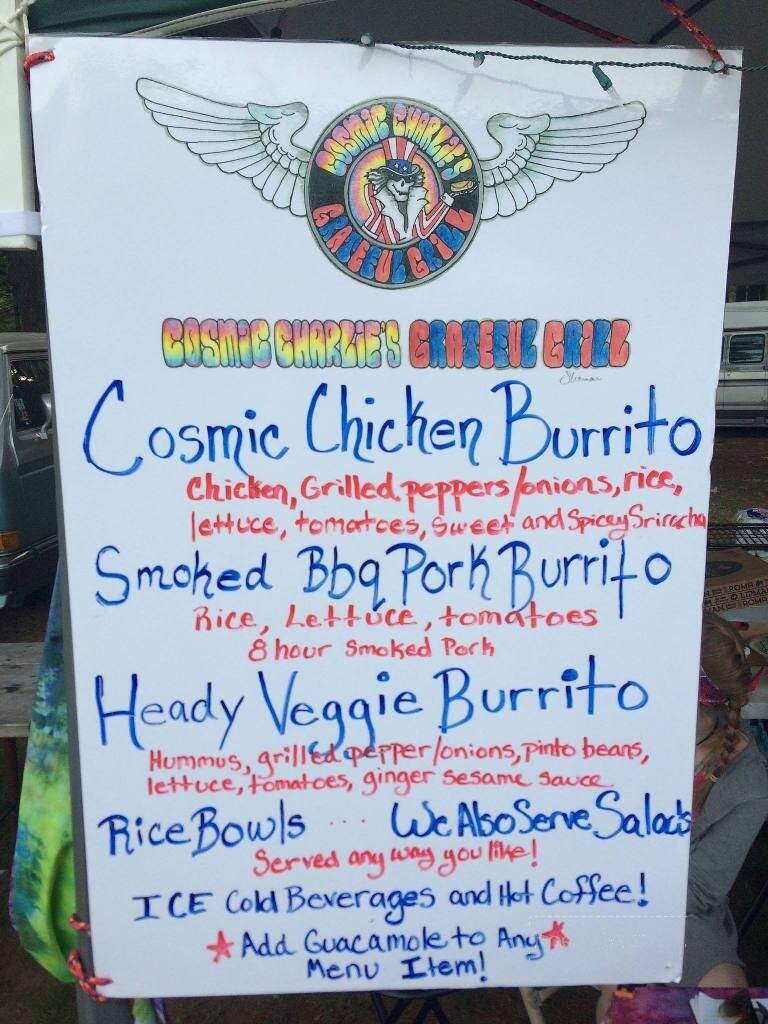 COSMIC CHARLIE'S
GRATEFUL GRILL
COSMIC CHARLIE'S GRATEFUL GRILL
Cosmic Chicken Burrito
Chicken, Grilled peppers/onions, rice,
lettuce, tomatoes, Sweet and Spicey Sriracha
Smoked Bbq Pork Burrito
Rice, Lettuce, tomatoes
8 hour Smoked Pork
Heady Veggie Burrito
Hummus, grilled pepper/onions, pinto beans,
lettuce, tomatoes, ginger sesame sauce
Rice Bowls ... We Also Serve Salads
Served any way you like!
ICE Cold Beverages and Hot Coffee!
Add Guacamole to Any
Menu Item!
ROMA
LIPMAN
ROMA